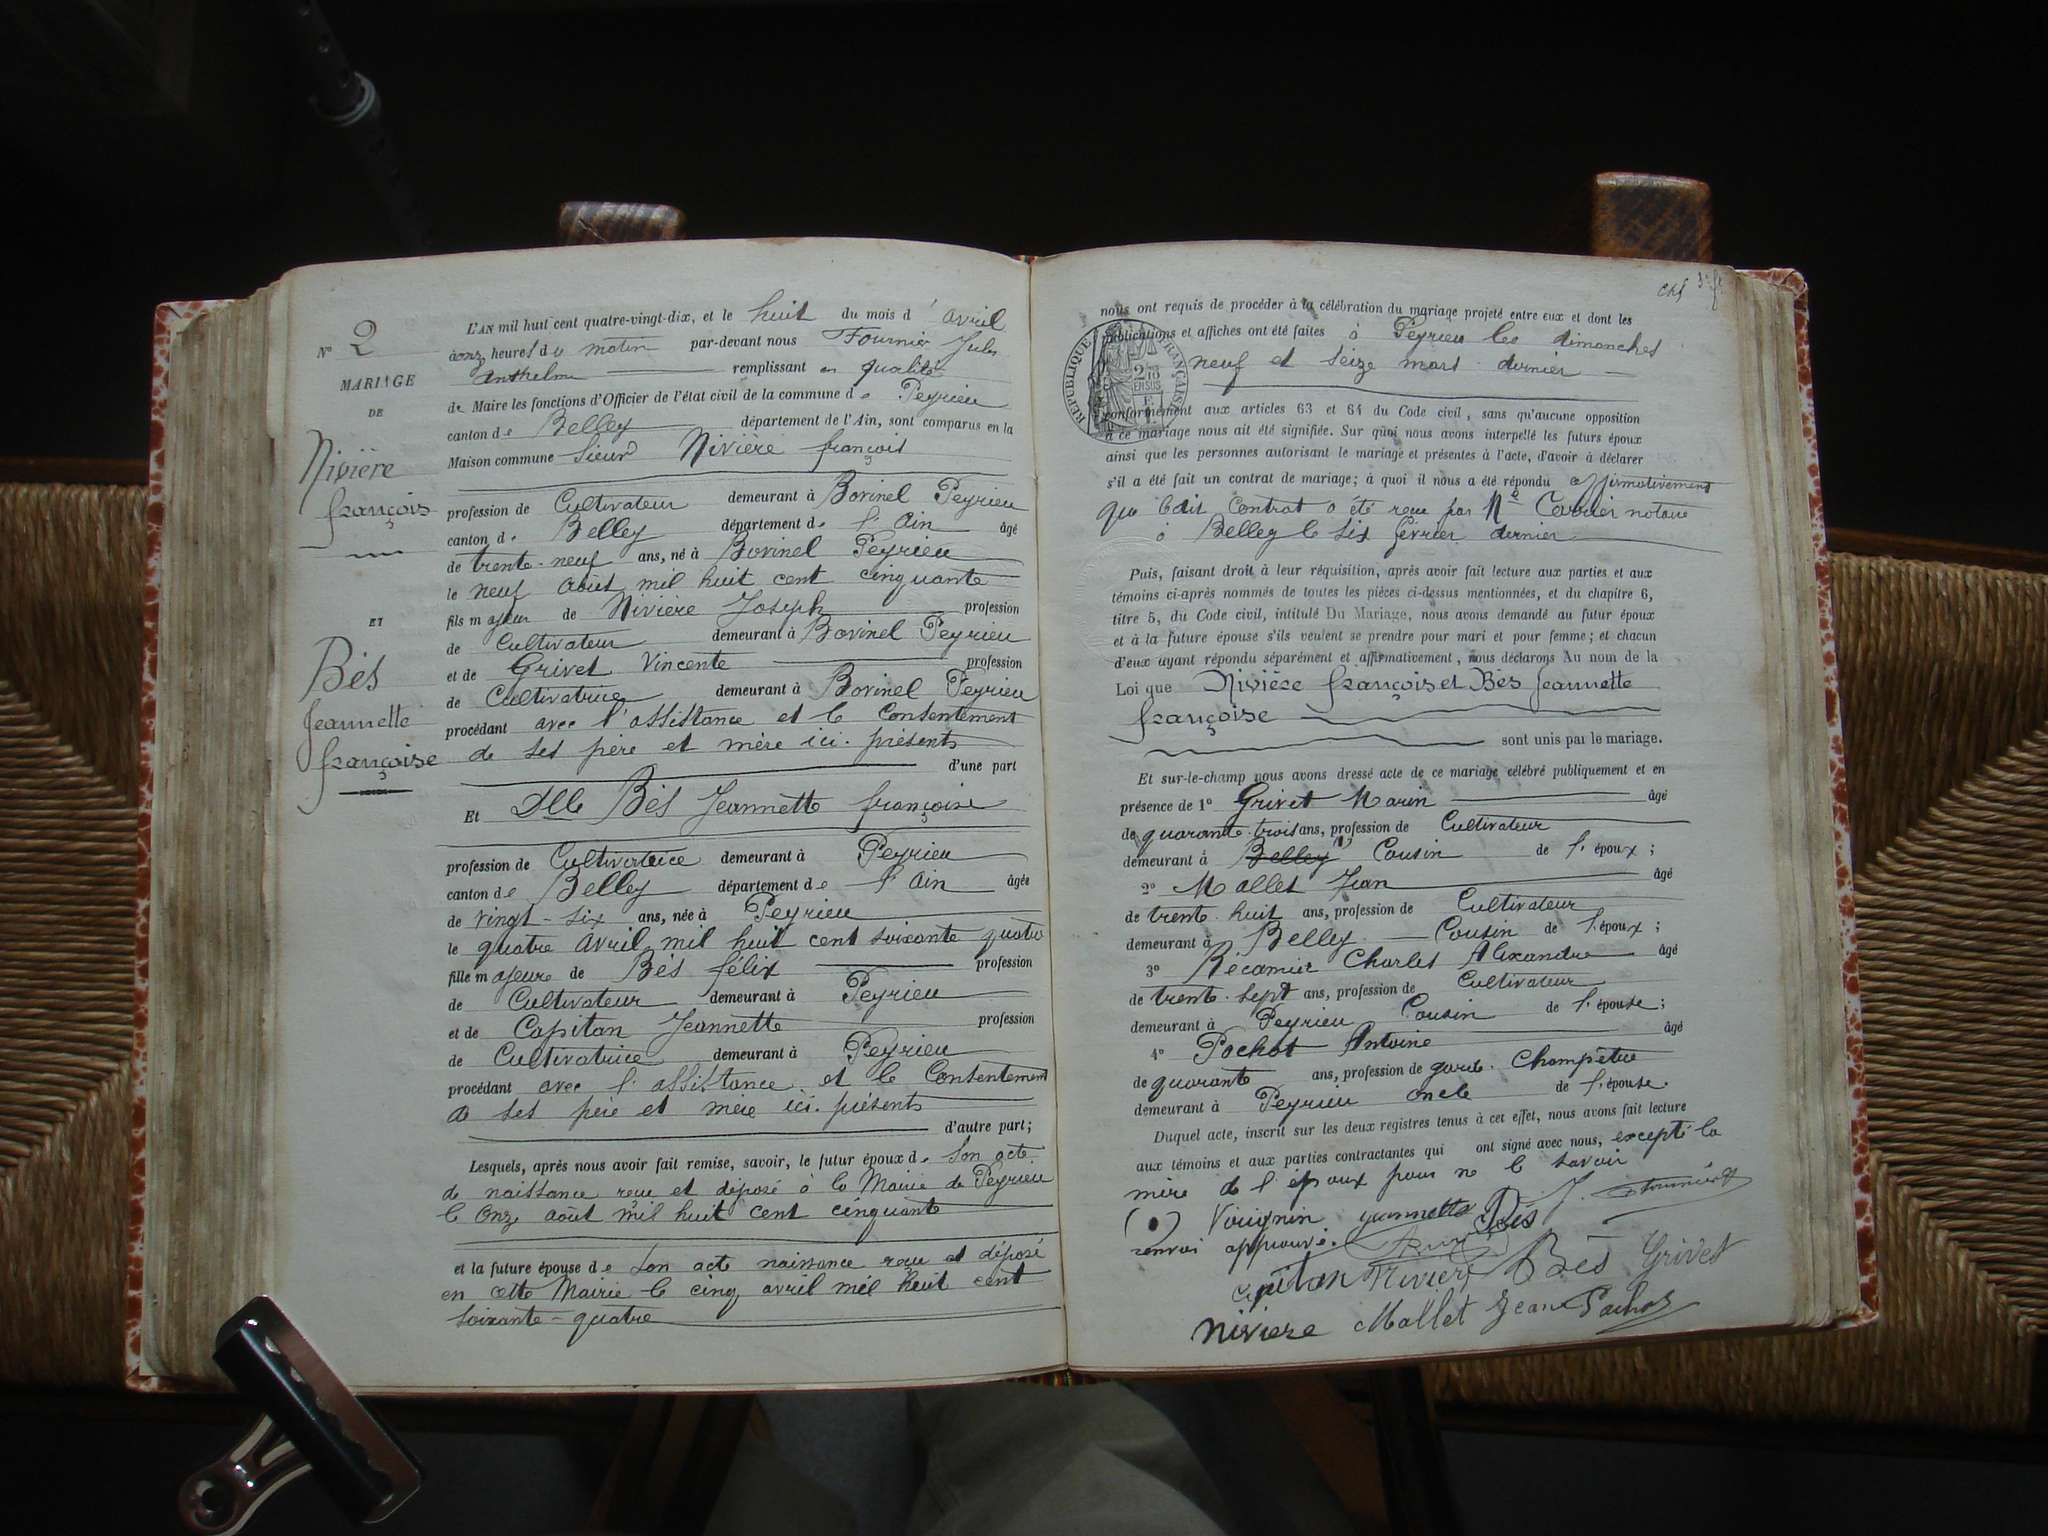 N° 2
MARIAGE
DE
Nivière
françois
ET
Bès
Jeannette
françoise
L'AN mil huit cent quatre-vingt-dix, et le huit du mois d' avril
à onz heures du matin par-devant nous Fournier Jules
Anthelme remplissant en qualité
de Maire les fonctions d'Officier de l'état civil de la commune de Peyrieu
canton de Belley département de l'Ain, sont comparus en la
Maison commune Sieur Nivière françois
profession de Cultivateur demeurant à Bovinel Peyrieu
canton de Belley département de l'Ain âgé
de trente-neuf ans, né à Bovinel Peyrieu
le neuf août mil huit cent cinquante
fils majeur de Nivière Joseph profession
de Cultivateur demeurant à Bovinel Peyrieu
et de Grivet Vincente profession
de Cultivatrice demeurant à Bovinel Peyrieu
procédant avec l'assistance et le Consentement
de ses père et mère ici présents
d'une part
Et Dlle Bès Jeannette françoise
profession de Cultivatrice demeurant à Peyrieu
canton de Belley département de l'Ain âgée
de vingt-six ans, née à Peyrieu
le quatre avril mil huit cent soixante quatre
fille majeure de Bès félix profession
de Cultivateur demeurant à Peyrieu
et de Capitan Jeannette profession
de Cultivatrice demeurant à Peyrieu
procédant avec l'assistance et le Consentement
de ses père et mère ici présents
d'autre part;
Lesquels, après nous avoir fait remise, savoir, le futur époux de son acte
de naissance reçu et déposé à la Mairie de Peyrieu
le Onze août mil huit cent cinquante
et la future épouse de son acte naissance reçu et déposé
en cette Mairie le cinq avril mil huit cent
soixante-quatre
nous ont requis de procéder à la célébration du mariage projeté entre eux et dont les
publications et affiches ont été faites à Peyrieu les dimanches
neuf et seize mars dernier
RÉPUBLIQUE FRANÇAISE
conformément aux articles 63 et 64 du Code civil, sans qu'aucune opposition
à ce mariage nous ait été signifiée. Sur quoi nous avons interpellé les futurs époux
ainsi que les personnes autorisant le mariage et présentes à l'acte, d'avoir à déclarer
s'il a été fait un contrat de mariage; à quoi il nous a été répondu affirmativement
que ledit Contrat a été reçu par Me notaire
à Belley le six février dernier
Puis, faisant droit à leur réquisition, après avoir fait lecture aux parties et aux
témoins ci-après nommés de toutes les pièces ci-dessus mentionnées, et du chapitre 6,
titre 5, du Code civil, intitulé Du Mariage, nous avons demandé au futur époux
et à la future épouse s'ils veulent se prendre pour mari et pour femme; et chacun
d'eux ayant répondu séparément et affirmativement, nous déclarons Au nom de la
Loi que Nivière françois et Bès Jeannette
françoise
sont unis par le mariage.
Et sur-le-champ nous avons dressé acte de ce mariage célébré publiquement et en
présence de 1° Grivet Marin âgé
de quarante-trois ans, profession de Cultivateur
demeurant à Belley Cousin de l'époux;
2° Mallet Jean âgé
de trente-huit ans, profession de Cultivateur
demeurant à Belley Cousin de l'époux;
3° Récamier Charles Alexandre âgé
de trente-sept ans, profession de Cultivateur
demeurant à Peyrieu Cousin de l'épouse;
4° Pochot Antoine âgé
de quarante ans, profession de garde-Champêtre
demeurant à Peyrieu oncle de l'épouse.
Duquel acte, inscrit sur les deux registres tenus à cet effet, nous avons fait lecture
aux témoins et aux parties contractantes qui ont signé avec nous, excepté la
mère de l'époux pour ne le savoir
(•) Vougnin Jeannette Bès J. Fournier
renvoi approuvé.
Capitan Nivière Bès Grivet
Niviere Mallet Jean Pachot